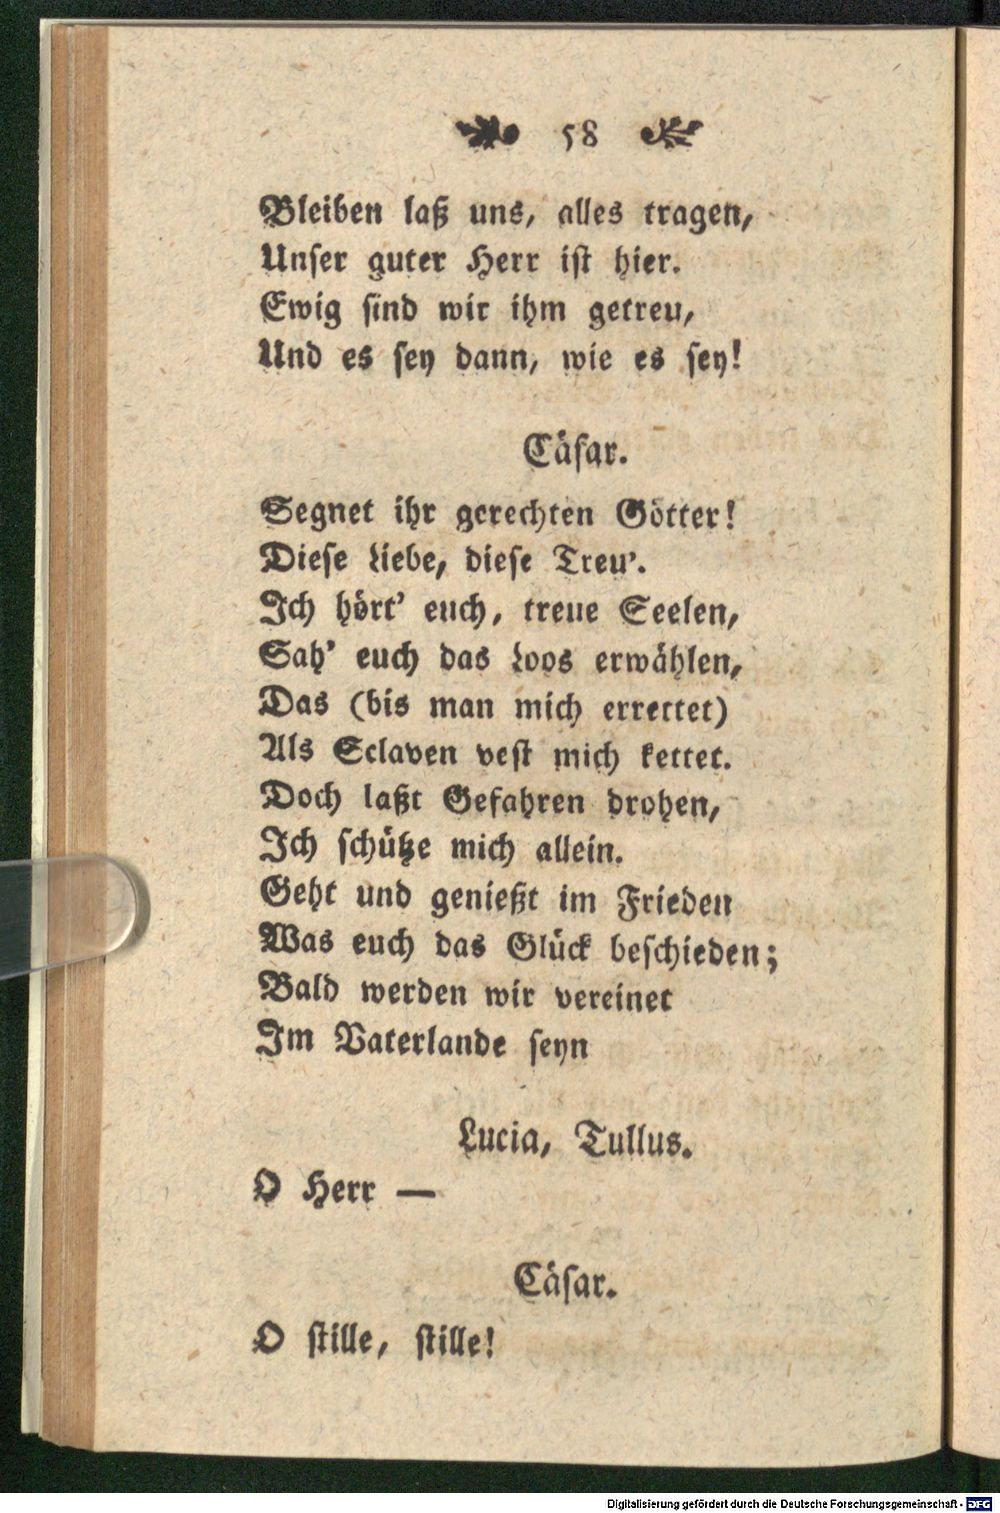 58
Bleiben laß uns, alles tragen,
Unser guter Herr ist hier.
Ewig sind wir ihm getreu,
Und es sey dann, wie es sey!
Cäsar.
Segnet ihr gerechten Götter!
Diese Liebe, diese Treu'.
Ich hört' euch, treue Seelen,
Sah' euch das Loos erwählen,
Das (bis man mich errettet)
Als Sclaven vest mich kettet.
Doch laßt Gefahren drohen,
Ich schütze mich allein.
Geht und genießt im Frieden
Was euch das Glück beschieden;
Bald werden wir vereinet
Im Vaterlande seyn
Lucia, Tullus.
O Herr —
Cäsar.
O stille, stille!
Digitalisierung gefördert durch die Deutsche Forschungsgemeinschaft - DFG